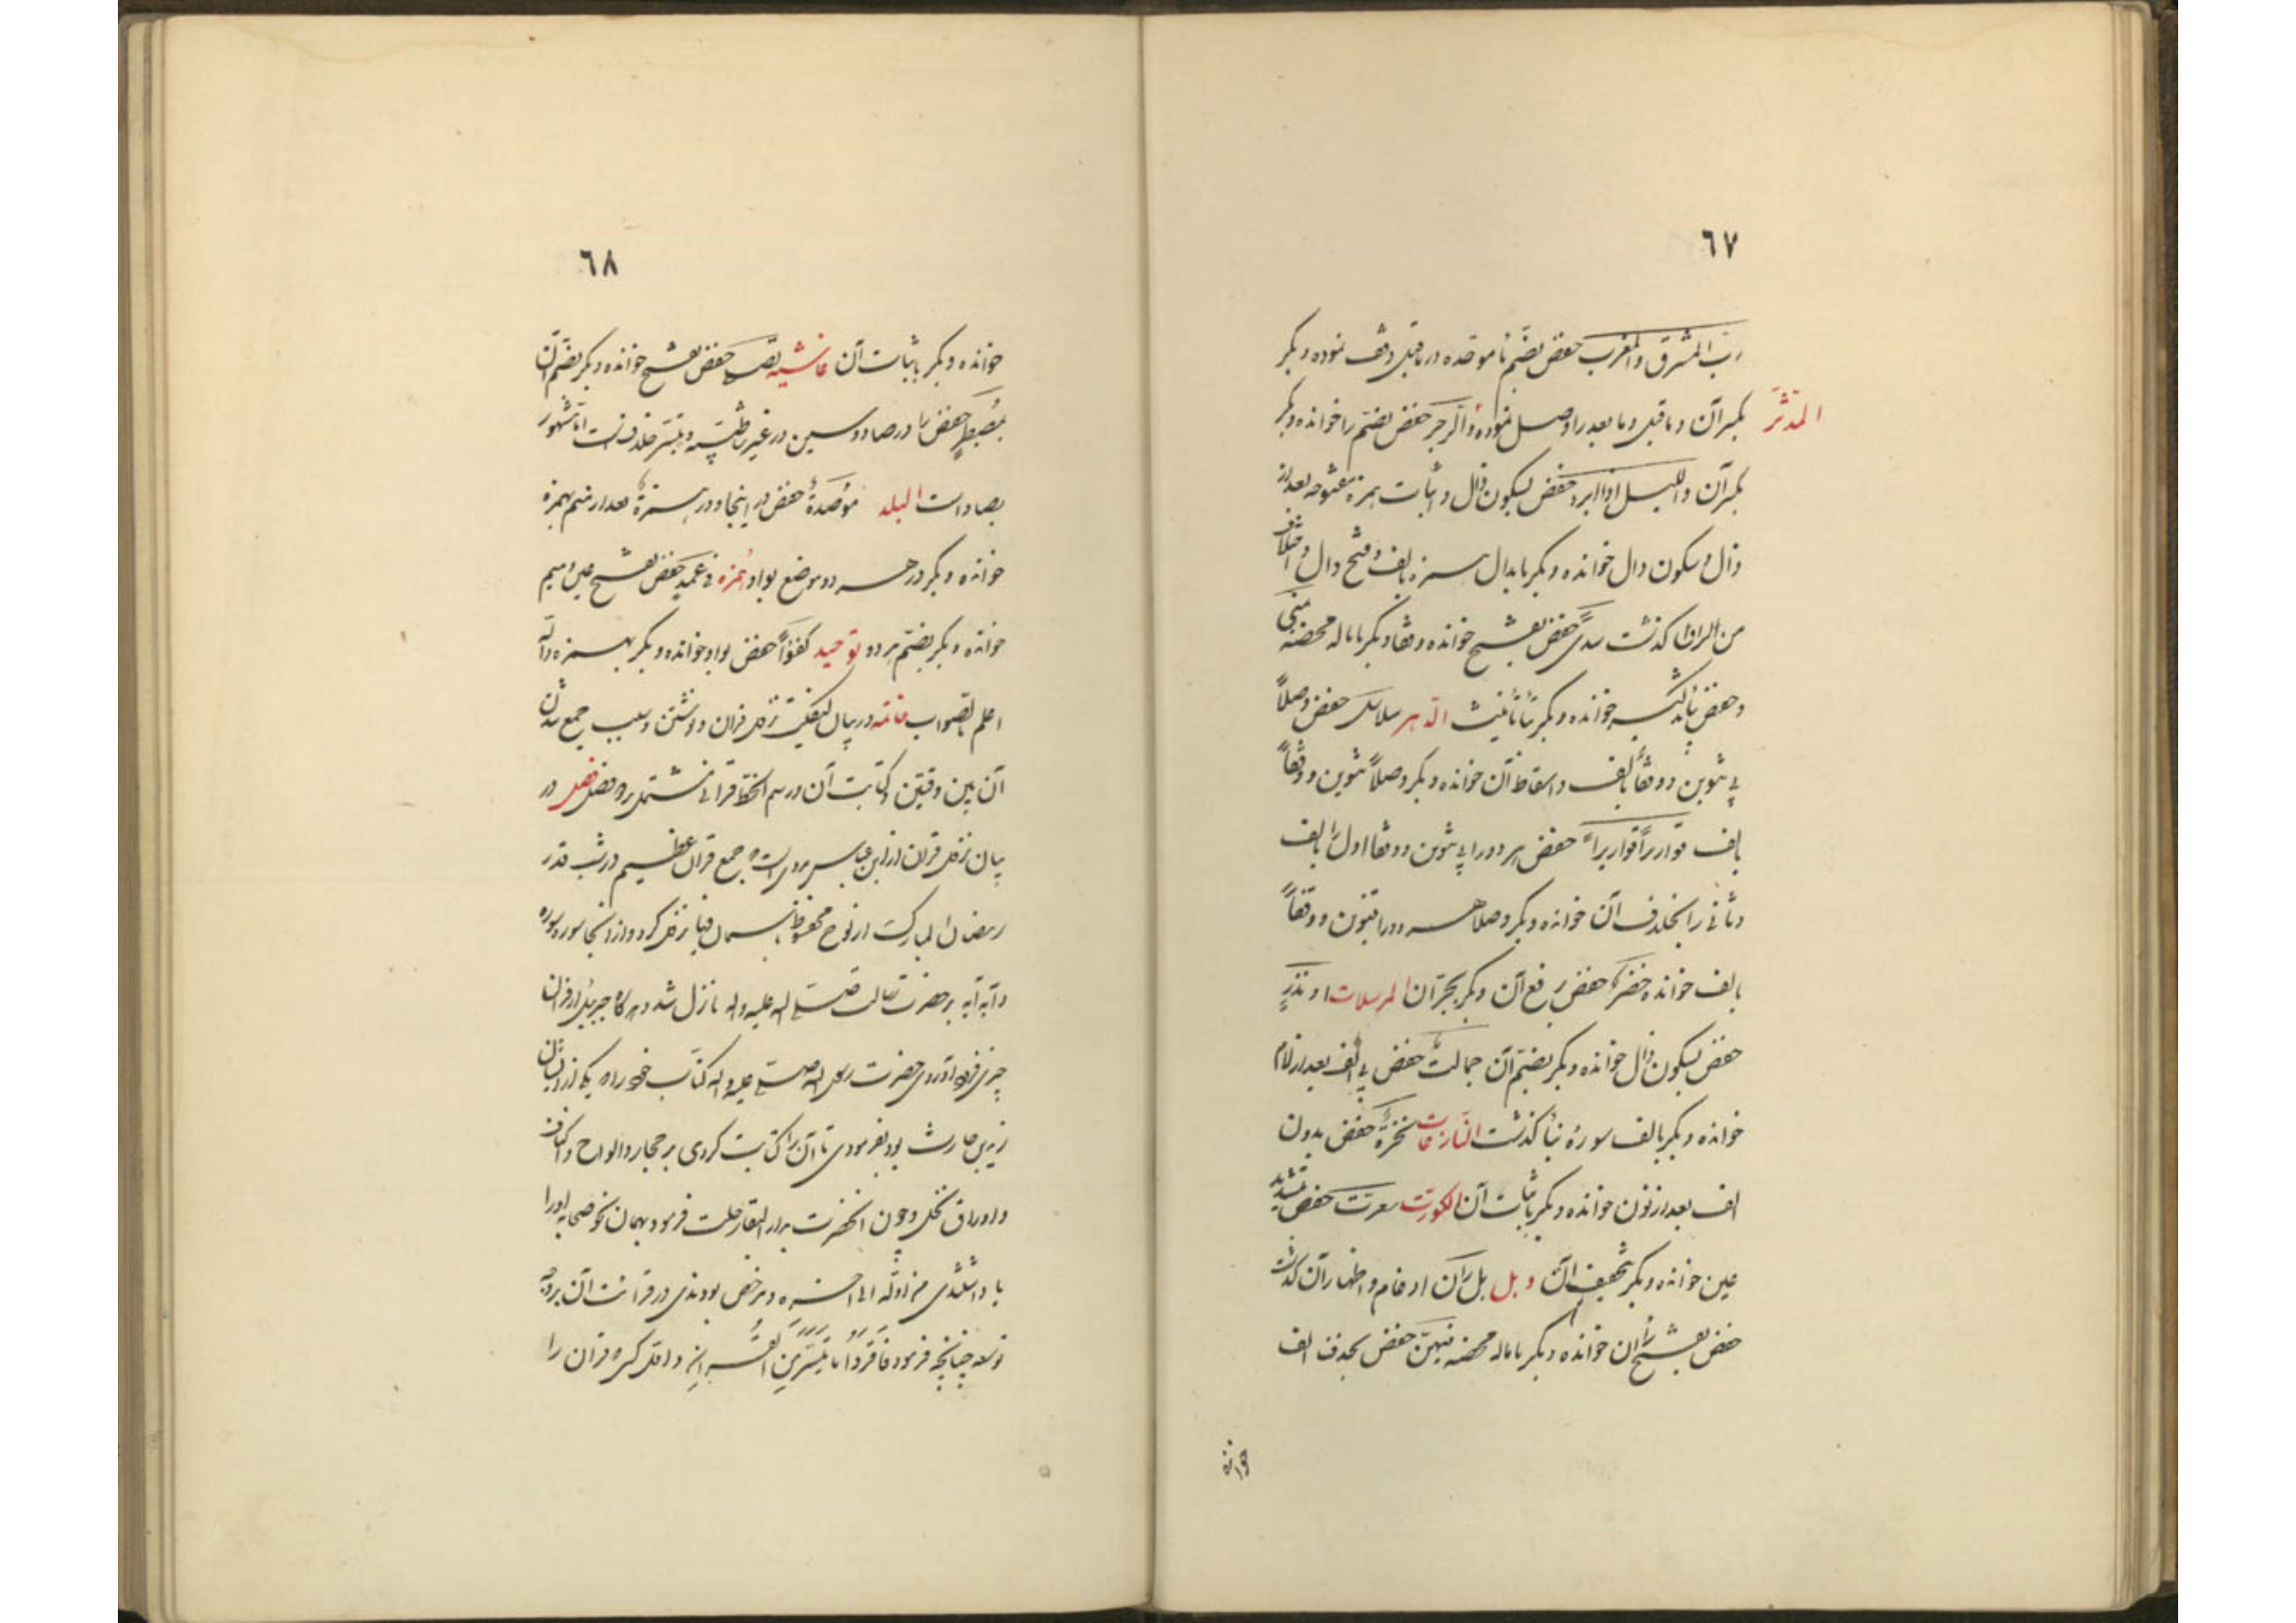 ٦٧
ربّ المشرق والمغرب حفض بضم باء موحّده در ماقبل وقف نموده و بکر
المدّثّر
بکسر آن و ماقبل و ما بعد را وصل نموده والرجز حفض بضم را خوانده و بکر
بکسر آن واللیل اذ ادبر حفض بسکون ذال و اثبات همزه مفتوحه بعد از
ذال و سکون دال خوانده و بکر بابدال همزه بالف و فتح دال و اختلاف
من راق گذشت سدًی حفض بفتح خوانده وقفا و بکر باماله محضه یمنی
و حفض بتذکیر خوانده و بکر بتا تأنیث الدّهر سلاسل حفض وصلاً
بی تنوین و وقفاً بالف و اسقاط آن خوانده و بکر وصلاً بتنوین و وقفاً
بالف قواریراً قواریراً حفض هر دو را بی تنوین و وقفا اول را بالف
و ثانی را بحذف آن خوانده و بکر وصلا هر دو را بتنوین و وقفاً
بالف خوانده خضر حفض برفع آن و بکر بجرّ آن المرسلات او نذرٍ
حفض بسکون ذال خوانده و بکر بضمّ آن جمالتٌ حفض بی الف بعد از لام
خوانده و بکر بالف سورۀ نبأ گذشت النّازعات نخرةً حفض بدون
الف بعد از نون خوانده و بکر باثبات آن کورت سعرت حفض بتشدید
عین خوانده و بکر بتخفیف آن و بل بل ران ادغام و اظهار آن گذشت
حفض بفتح ران خوانده و بکر باماله محضه فکهین حفض بحذف الف
خوانده
٦٨
خوانده و بکر باثبات آن غاشیه تصلی حفض بفتح خوانده و بکر بضم آن
بمصیطرٍ حفض را در صاد و سین در غیر طیّبه و تیسر خلاف است امّا مشهور
بصاد است البلد مؤصدةٌ حفض در اینجا و در همزة بعد از میم بهمزه
خوانده و بکر در هر دو موضع بواو همزه فی عمدٍ حفض بفتح عین و میم
خوانده و بکر بضمّ هر دو توحید کفوًا حفض بواو خوانده و بکر بهمزه واللّه
اعلم بالصواب خاتمه در بیان کیفیّت نزول قران و نوشتن و سبب جمع شدن
آن بین دفتین و کتابت آن در رسم الخط قرانی مشتمل بر دو فصل فصل در
بیان نزول قران از ابن عباس مرویست که جمع قران عظیم در شب قدر
رمضان المبارک از لوح محفوظ باسمان دنیا نزول کرد و از آنجا سوره سوره
و آیه آیه بر حضرت رسالت صلّی الله علیه و اله نازل شد و هرگاه جبرئیل از قران
چیزی فرو آوردی حضرت رسول الله صلی الله علیه و اله کتّاب خود را که یکی از ایشان
زید بن حارث بود بفرمودی تا آن را کتابت کردی بر حجار و الواح و اکتاف
و اوراق نخل و چون انحضرت بدار البقا رحلت فرمود بهمان نحو صحابه او را
یاد داشتندی من اوّله الی آخره و مرخص بودندی در قرائت آن بر وجه
توسعه چنانچه فرمود فاقرؤا ما تیسّر من القرآن و اول کسی که قران را